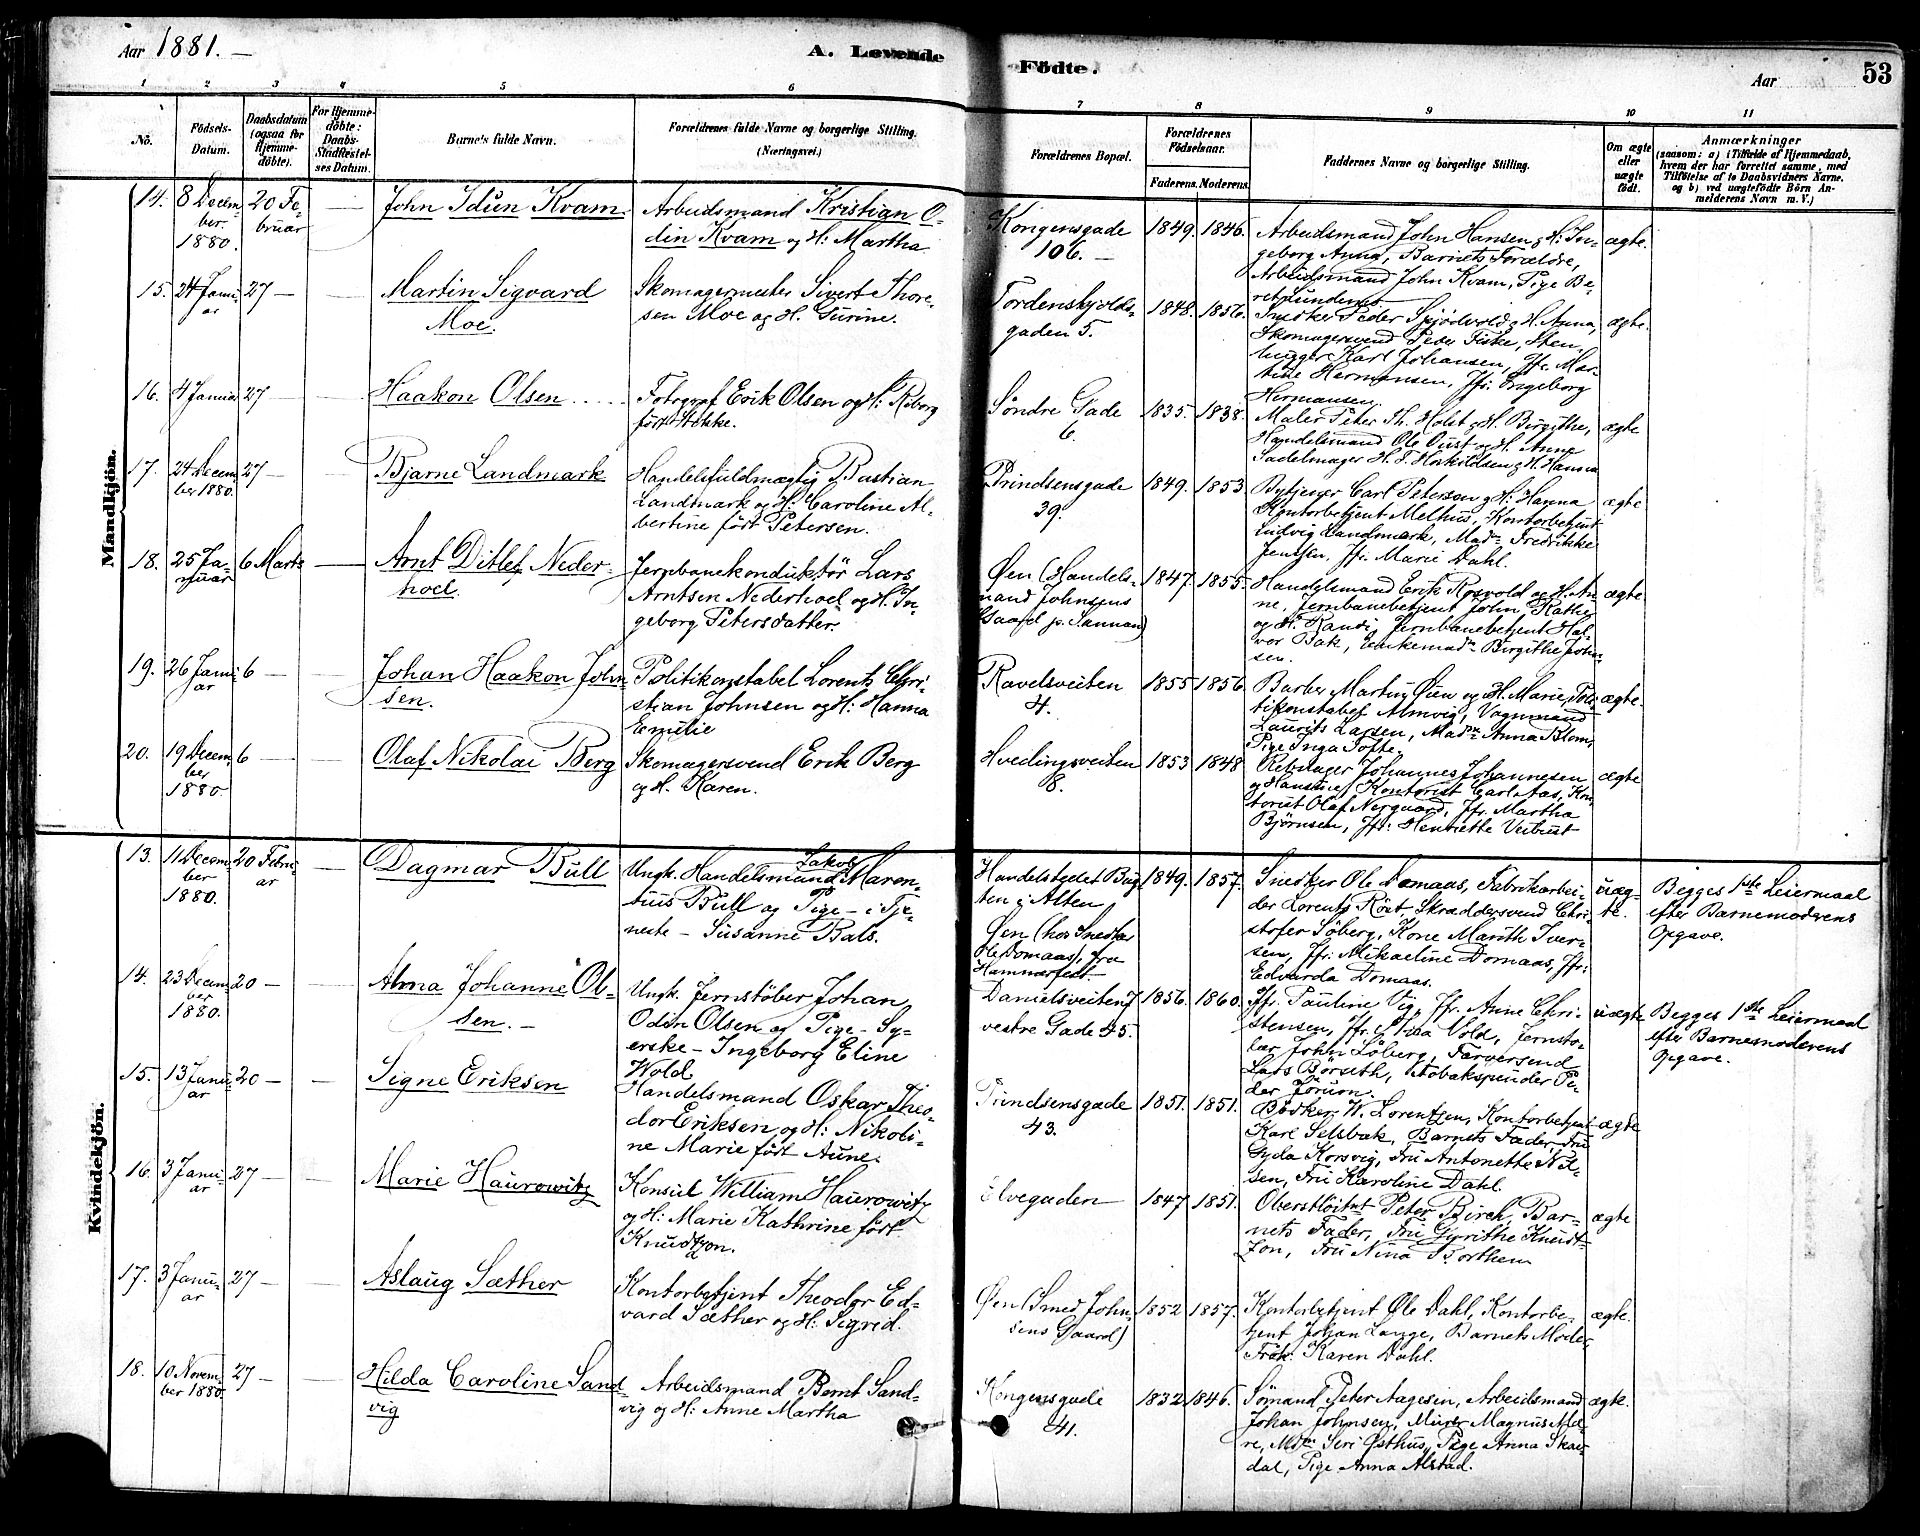 Aar 1881. —
A. Levende
Födte.
Aar
53
1 2 3 4 5 6 7 8 9 10 11
No.
Födsels-Datum.
Daabsdatum (ogsaa for Hjemme-döbte).
For Hjemme-döbte: Daabs-Stadfæstel-ses Datum.
Barnets fulde Navn.
Forældrenes fulde Navne og borgerlige Stilling. (Næringsvei.)
Forældrenes Bopæl.
Forældrenes Födselsaar.
Faderens. Moderens.
Faddernes Navne og borgerlige Stilling.
Om ægte eller uægte födt.
Anmærkninger
(saasom: a) i Tilfælde af Hjemmedaab,
hvem der har forrettet samme, med
Tilföielse af to Daabsvidners Navne,
og b) ved uægtefödte Börn An-
melderens Navn m. V.)
Mandkjön.
14. 8 Decem-
ber
1880.
20 Fe-
bruar
John Idun Kvam.
Arbeidsmand Kristian O-
din Kvam og H: Martha
Kongensgade
106. —
1849. 1846.
Arbeidsmand John Hansen & H: In-
geborg Anna, Barnets Forældre,
Arbeidsmand John Kvam, Pige Be-
ægte.
15. 24 Janu-
ar
27 —
Martin Sigvard
Moe.
Skomagermester Sivert Thore-
sen Moe og H. Gurine.
Tordenskjolds-
gaden 5.
1848. 1856.
Snedker Peder Spjödvold & H. Anna,
Skomagersvend Peder Fiske, Sten-
hugger Karl Johansen, Jfr. Mar-
tine Hermansen, Jfr. Ingeborg
Hermansen.
ægte.
16. 4 Januar 27 —
Haakon Olsen . . . . .
Fotograf Erik Olsen og H: Riborg
født Stokke.
Söndre Gade
6.
1835. 1838.
Maler Peter Th. Holst & H. Birgithe,
Handelsmand Ole Oust og H. Anne
Sadelmager H. T. Horkildsen & H. Hanna
ægte
17. 24 Decem-
ber 1880.
27 —
Bjarne Landmark
Handelsfuldmægtig Bastian
Landmark og H: Caroline Al-
bertine født Petersen.
Prindsensgade
39.
1849. 1853.
Bytjener Carl Peterson & H: Hanna
Kontorbetjent Melhus, Kontorbetjent
Ludvig Landmark, Mad. Fredrikke
Jenssen, Jfr. Marie Dahl.
ægte
18. 25 Ja-
nuar
6 Marts
Arnt Ditlef Neder-
hoel.
Jernbanekonduktör Lars
Arntsen Nederhoel og H. In-
geborg Petersdatter.
Øen (Handels-
mand Johnsens
Gaard
1847. 1855.
Handelsmand Erik Rosvold og H. An-
ne, Jernbanebetjent John Rathe
og H. Randi, Jernbanebetjent Hal-
vor Bak, Enkemad. Birgithe John-
sen.
ægte.
19. 26 Janu-
ar
6 —
Johan Haakon John-
sen.
Politikonstabel Lorents Chri-
stian Johnsen og H: Hanna
Emilie
Ravelsveiten
4.
1855 1856.
Barber Martin Øien og H. Marie, Poli-
tikonstabel Almvig, Vognmand
Laurits Larsen, Mad. Anna Blom,
Pige Inga Tofte.
ægte.
20. 19 Decem-
ber
1880.
6 —
Olaf Nikolai Berg
Skomagersvend Erik Berg
og H. Karen.
Hvedingsveiten
8.
1853 1848
Rebslager Johannes Johannesen
og Hanstine, Kontorist Carl Aas, Kon-
torist Olaf Nergaard, Jfr. Martha
Björnsen, Jfr: Henriette Veibust
ægte
Kvindekjön.
13. 11 Decem-
ber
1880.
20 Febru-
ar
Dagmar Bull
Ungk. Handelsmand Jakob Maren-
tius Bull og Pige — i Tje-
neste — Susanne Bals.
Handelstedet Bug-
ten i Alten
Øen (hos Snedker
Ole Domaas), fra
Hammerfest
1849. 1857.
Snedker Ole Domaas, Fabrikarbei-
der Lorents Röst, Skræddersvend Chri-
stofer Söberg, Kone Marith Iver-
sen, Jfr. Mikaeline Domaas, Jfr:
Edvarda Domaas.
uæg-
te.
Begges 1ste Leiermaal
efter Barnemoderens
Opgave.
14. 23 Decem-
ber
1880.
20 —
Alma Johanne Ol-
sen. —
Ungk. Jernstöber Johan
Odin Olsen og Pige — Sy-
erske — Ingeborg Eline
Wold
Danielsveiten 7
vestre Gade 45.
1856. 1860.
Jfr. Pauline Vig, Jfr. Anne Chri-
stensen, Jfr. Stina Vold, Jernstö-
ber John Löberg, Farversvend
Lars Börseth, Tobakspinder Pe-
der
uægte
Begges 1ste Leiermaal
efter Barnemoderens
Opgave.
15. 13 Janu-
ar
20 —
Signe Eriksen
Handelsmand Oskar Theo-
dor Eriksen og H: Nikoli-
ne Marie født Aune.
Prindsensgade
43.
1851. 1851.
Bödker W. Lorentzen, Kontorbetjent
Karl Selsbak, Barnets Fader, Fru
Gyda Korsvig, Fru Antonette Nil-
sen, Fru Karoline Dahl.
ægte
16. 3 Janu-
ar
27 —
Marie Haurowitz
Konsul William Haurowitz
og H: Marie Kathrine født
Knudtzon.
Elvegaden
1847 1851.
Oberstlöitnt Peter Birch, Bar-
nets Fader, Fru Gyrithe Knudt-
zon, Fru Nina Borthen
ægte
17. 3 Janu-
ar
27 —
Aslaug Sæther
Kontorbetjent Theodor Ed-
vard Sæther og H: Sigrid.
Øen (Smed John-
sens Gaard)
1852 1857.
Kontorbetjent Ole Dahl, Kontorbe-
tjent Johan Lange, Barnets Moder,
Frök. Karen Dahl.
ægte.
18. 10 Novem-
ber 1880.
27 —
Hilda Caroline Sand-
vig
Arbeidsmand Bernt Sand-
vig og H: Anne Martha
Kongensgade
41.
1832 1846.
Sömand Peter Aagesen, Arbeidsmand
Johan Johnsen, Murer Magnus
Seri Østhus, Pige Anna Skar-
dal, Pige Anna Alstad.
ægte.